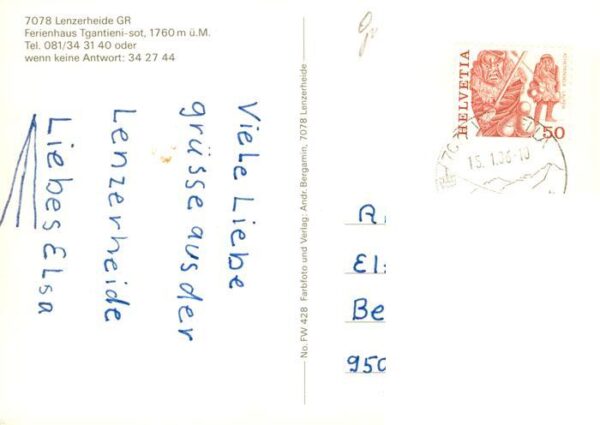 7078 Lenzerheide GR
Ferienhaus Tgantieni-sot, 1760 m ü.M.
Tel. 081/34 31 40 oder
wenn keine Antwort: 34 27 44
Viele Liebe
grüsse aus der
Lenzerheide
Liebes Elsa
No. FW 428 Farbfoto und Verlag: Andr. Bergamin, 7078 Lenzerheide
HELVETIA
50
15.1.86-10
El
Be
950